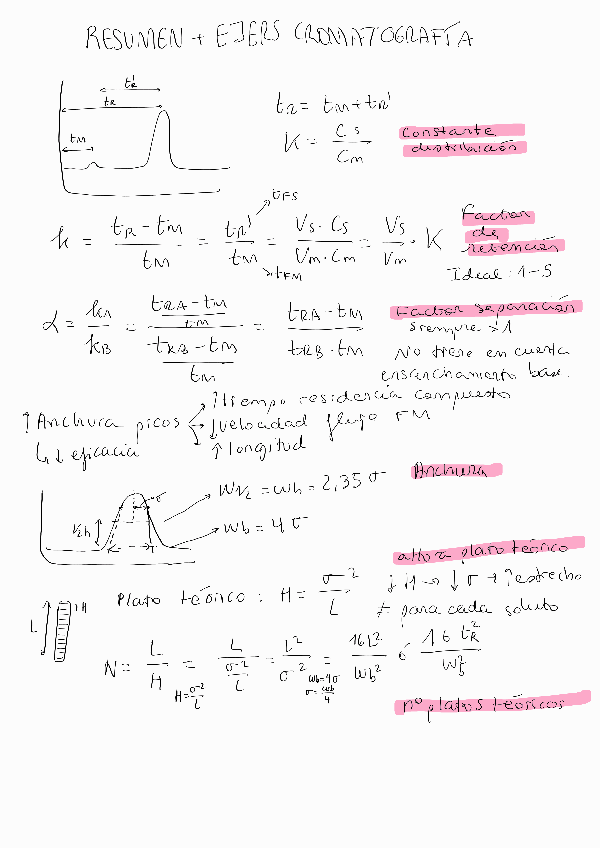 RESUMEN + EJERS CROMATOGRAFÍA
tR'
tR
tM
tR = tM + tR'
K = Cs / Cm
Constante distribución
tFS
k = (tR - tM) / tM = tR' / tM = (Vs · Cs) / (Vm · Cm) = Vs / Vm · K
tFM
Factor de retención
Ideal: 1-5
α = kA / kB = ((tRA - tM) / tM) / ((tRB - tM) / tM) = (tRA - tM) / (tRB - tM)
Factor separación
siempre >1
No tiene en cuenta
ensanchamiento base.
↑ Anchura picos
↳ ↓ eficacia
↑ tiempo residencia compuesto
↓ velocidad flujo FM
↑ longitud
Anchura
σ
½h
W½ = wh = 2,35 σ
Wb = 4 σ
altura plato teórico
Plato teórico : H = σ² / L
↓ H → ↓ σ → ↑ estrecho
≠ para cada soluto
L
H
N = L / H = L / (σ² / L) = L² / σ² = 16L² / Wb² ó 16 tR² / Wb²
H = σ² / L
Wb = 4σ
σ = Wb / 4
nº platos teóricos